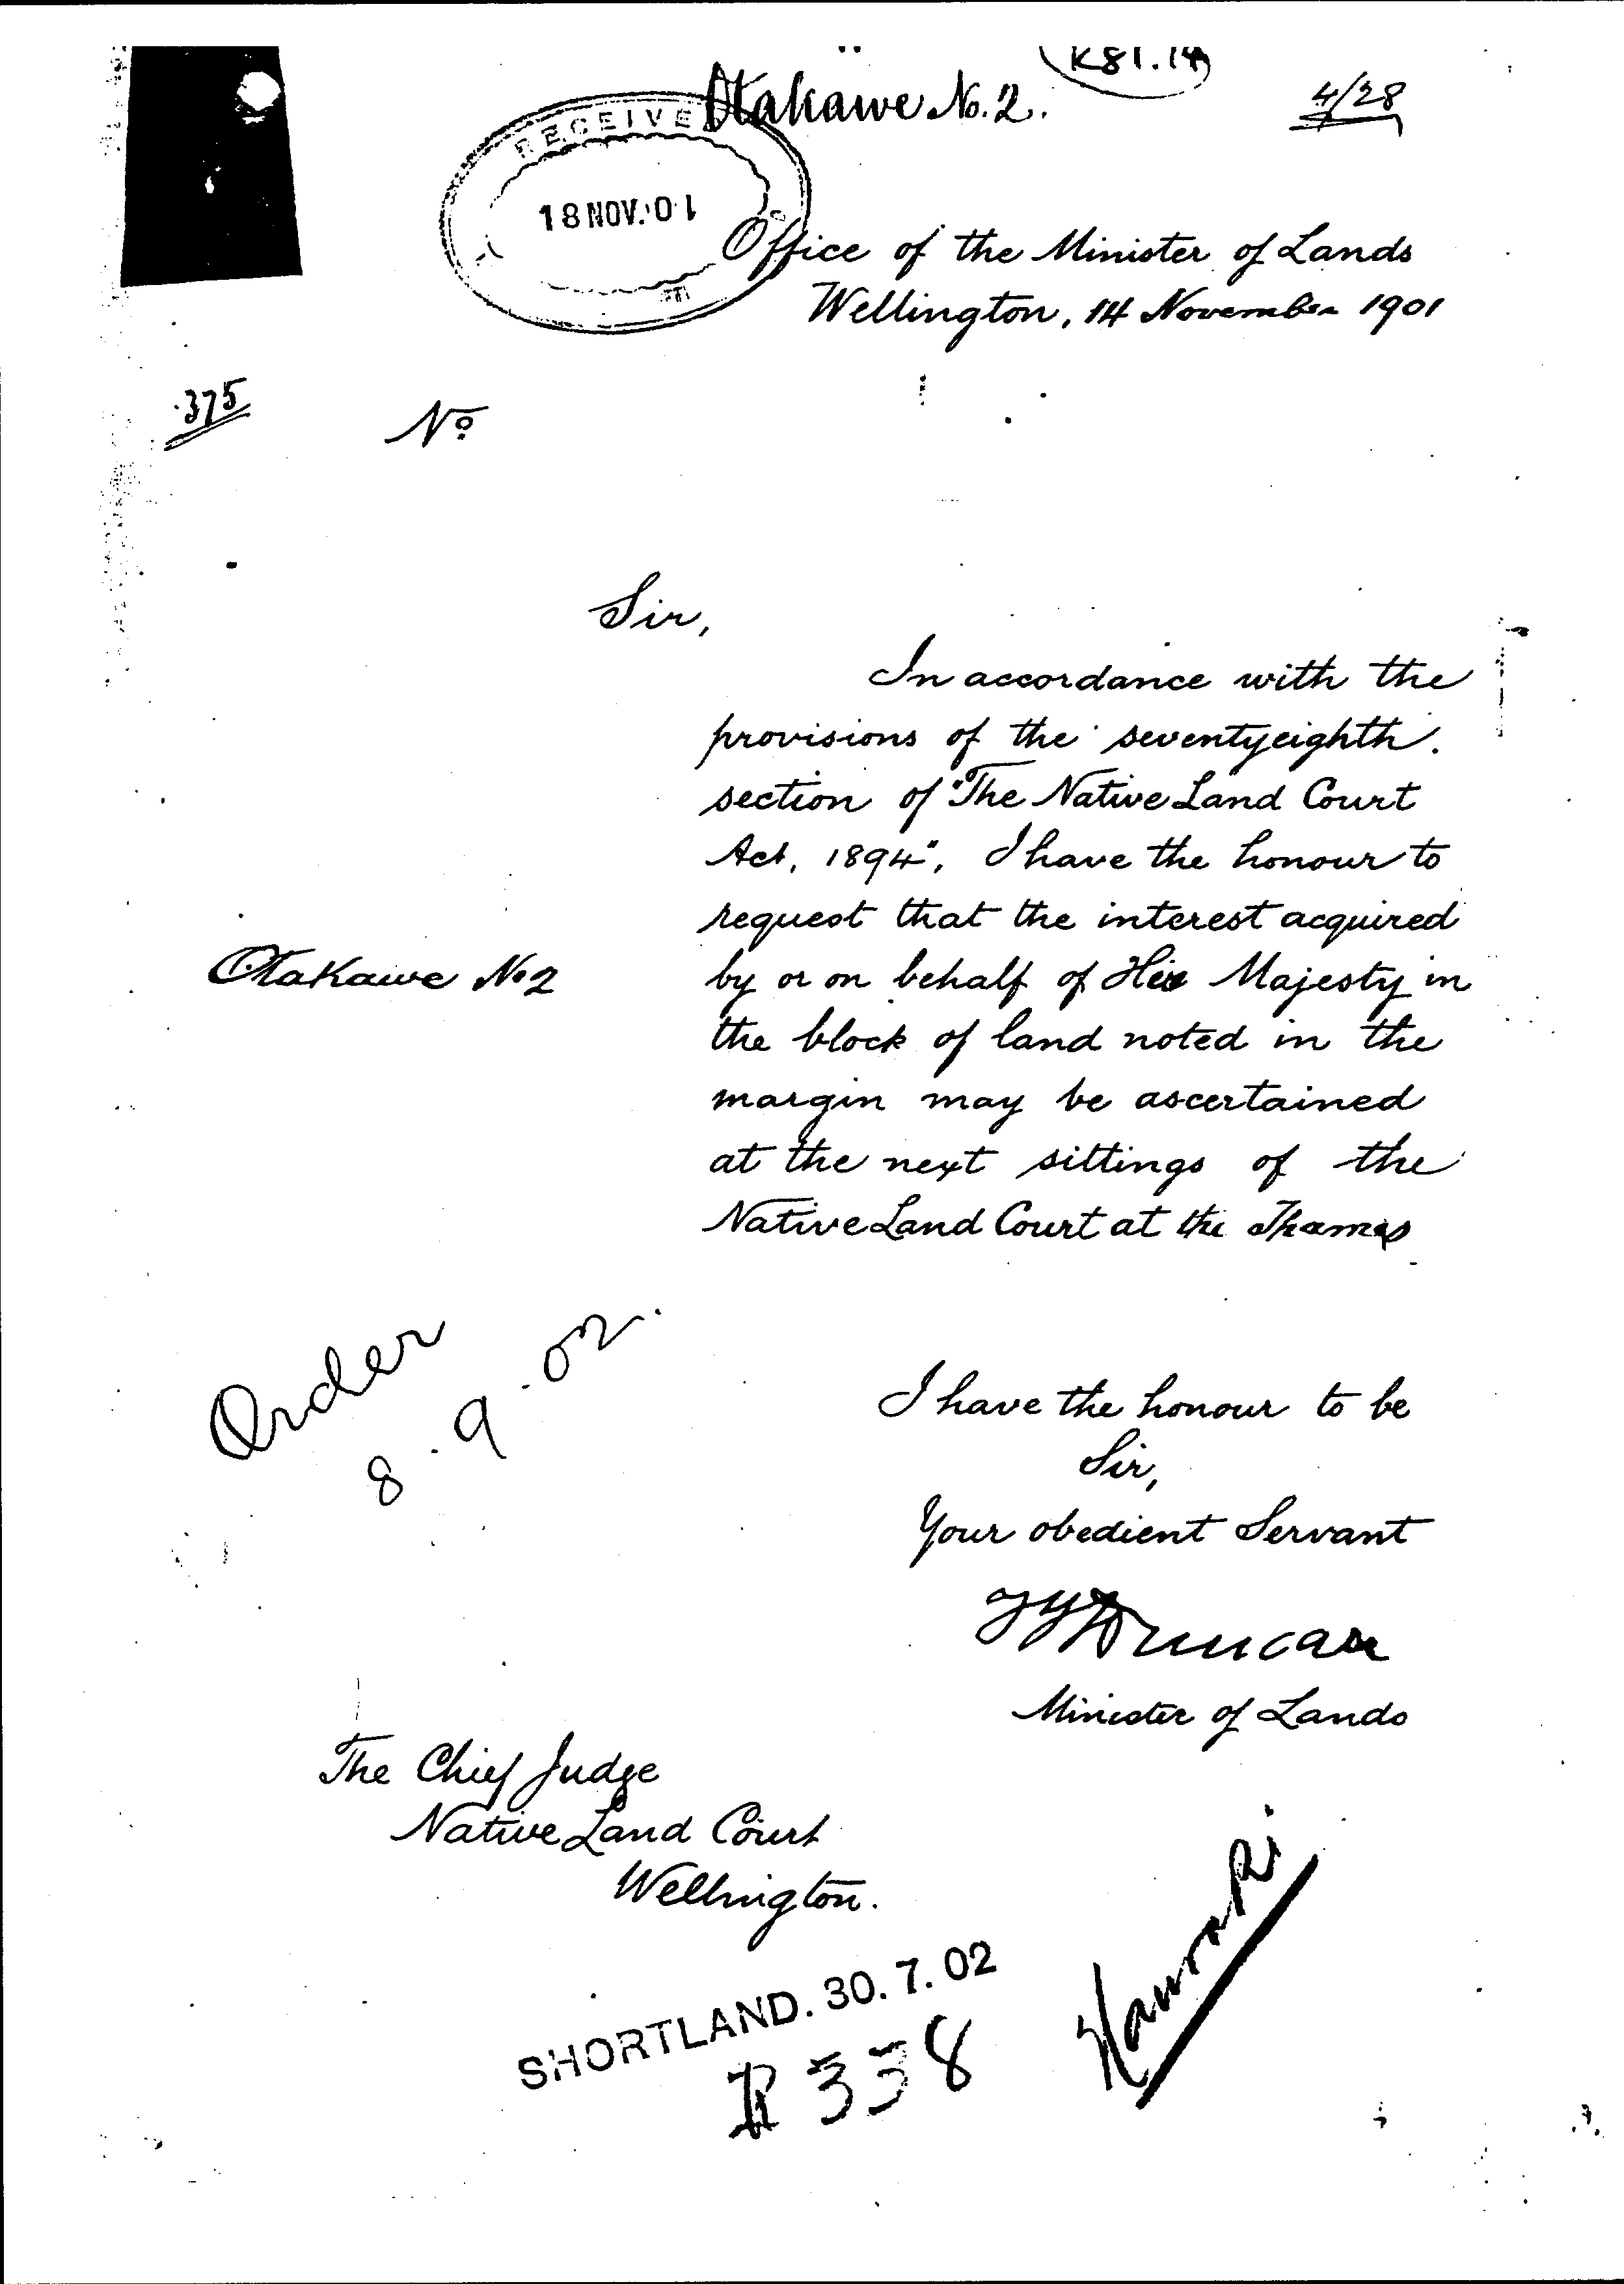 K81.14
Otakawe No. 2.
4/28
RECEIVED
18 NOV. 01
Office of the Minister of Lands
Wellington, 14 November 1901
375
No
Sir,
In accordance with the
provisions of the seventyeighth
section of "The Native Land Court
Act, 1894", I have the honour to
request that the interest acquired
Otakawe No 2
by or on behalf of His Majesty in
the block of land noted in the
margin may be ascertained
at the next sittings of the
Native Land Court at the Thames
Order
8.9.02.
I have the honour to be
Sir,
Your obedient Servant
TYDuncan
Minister of Lands
The Chief Judge
Native Land Court
Wellington.
SHORTLAND. 30.7.02
338
Hauraki